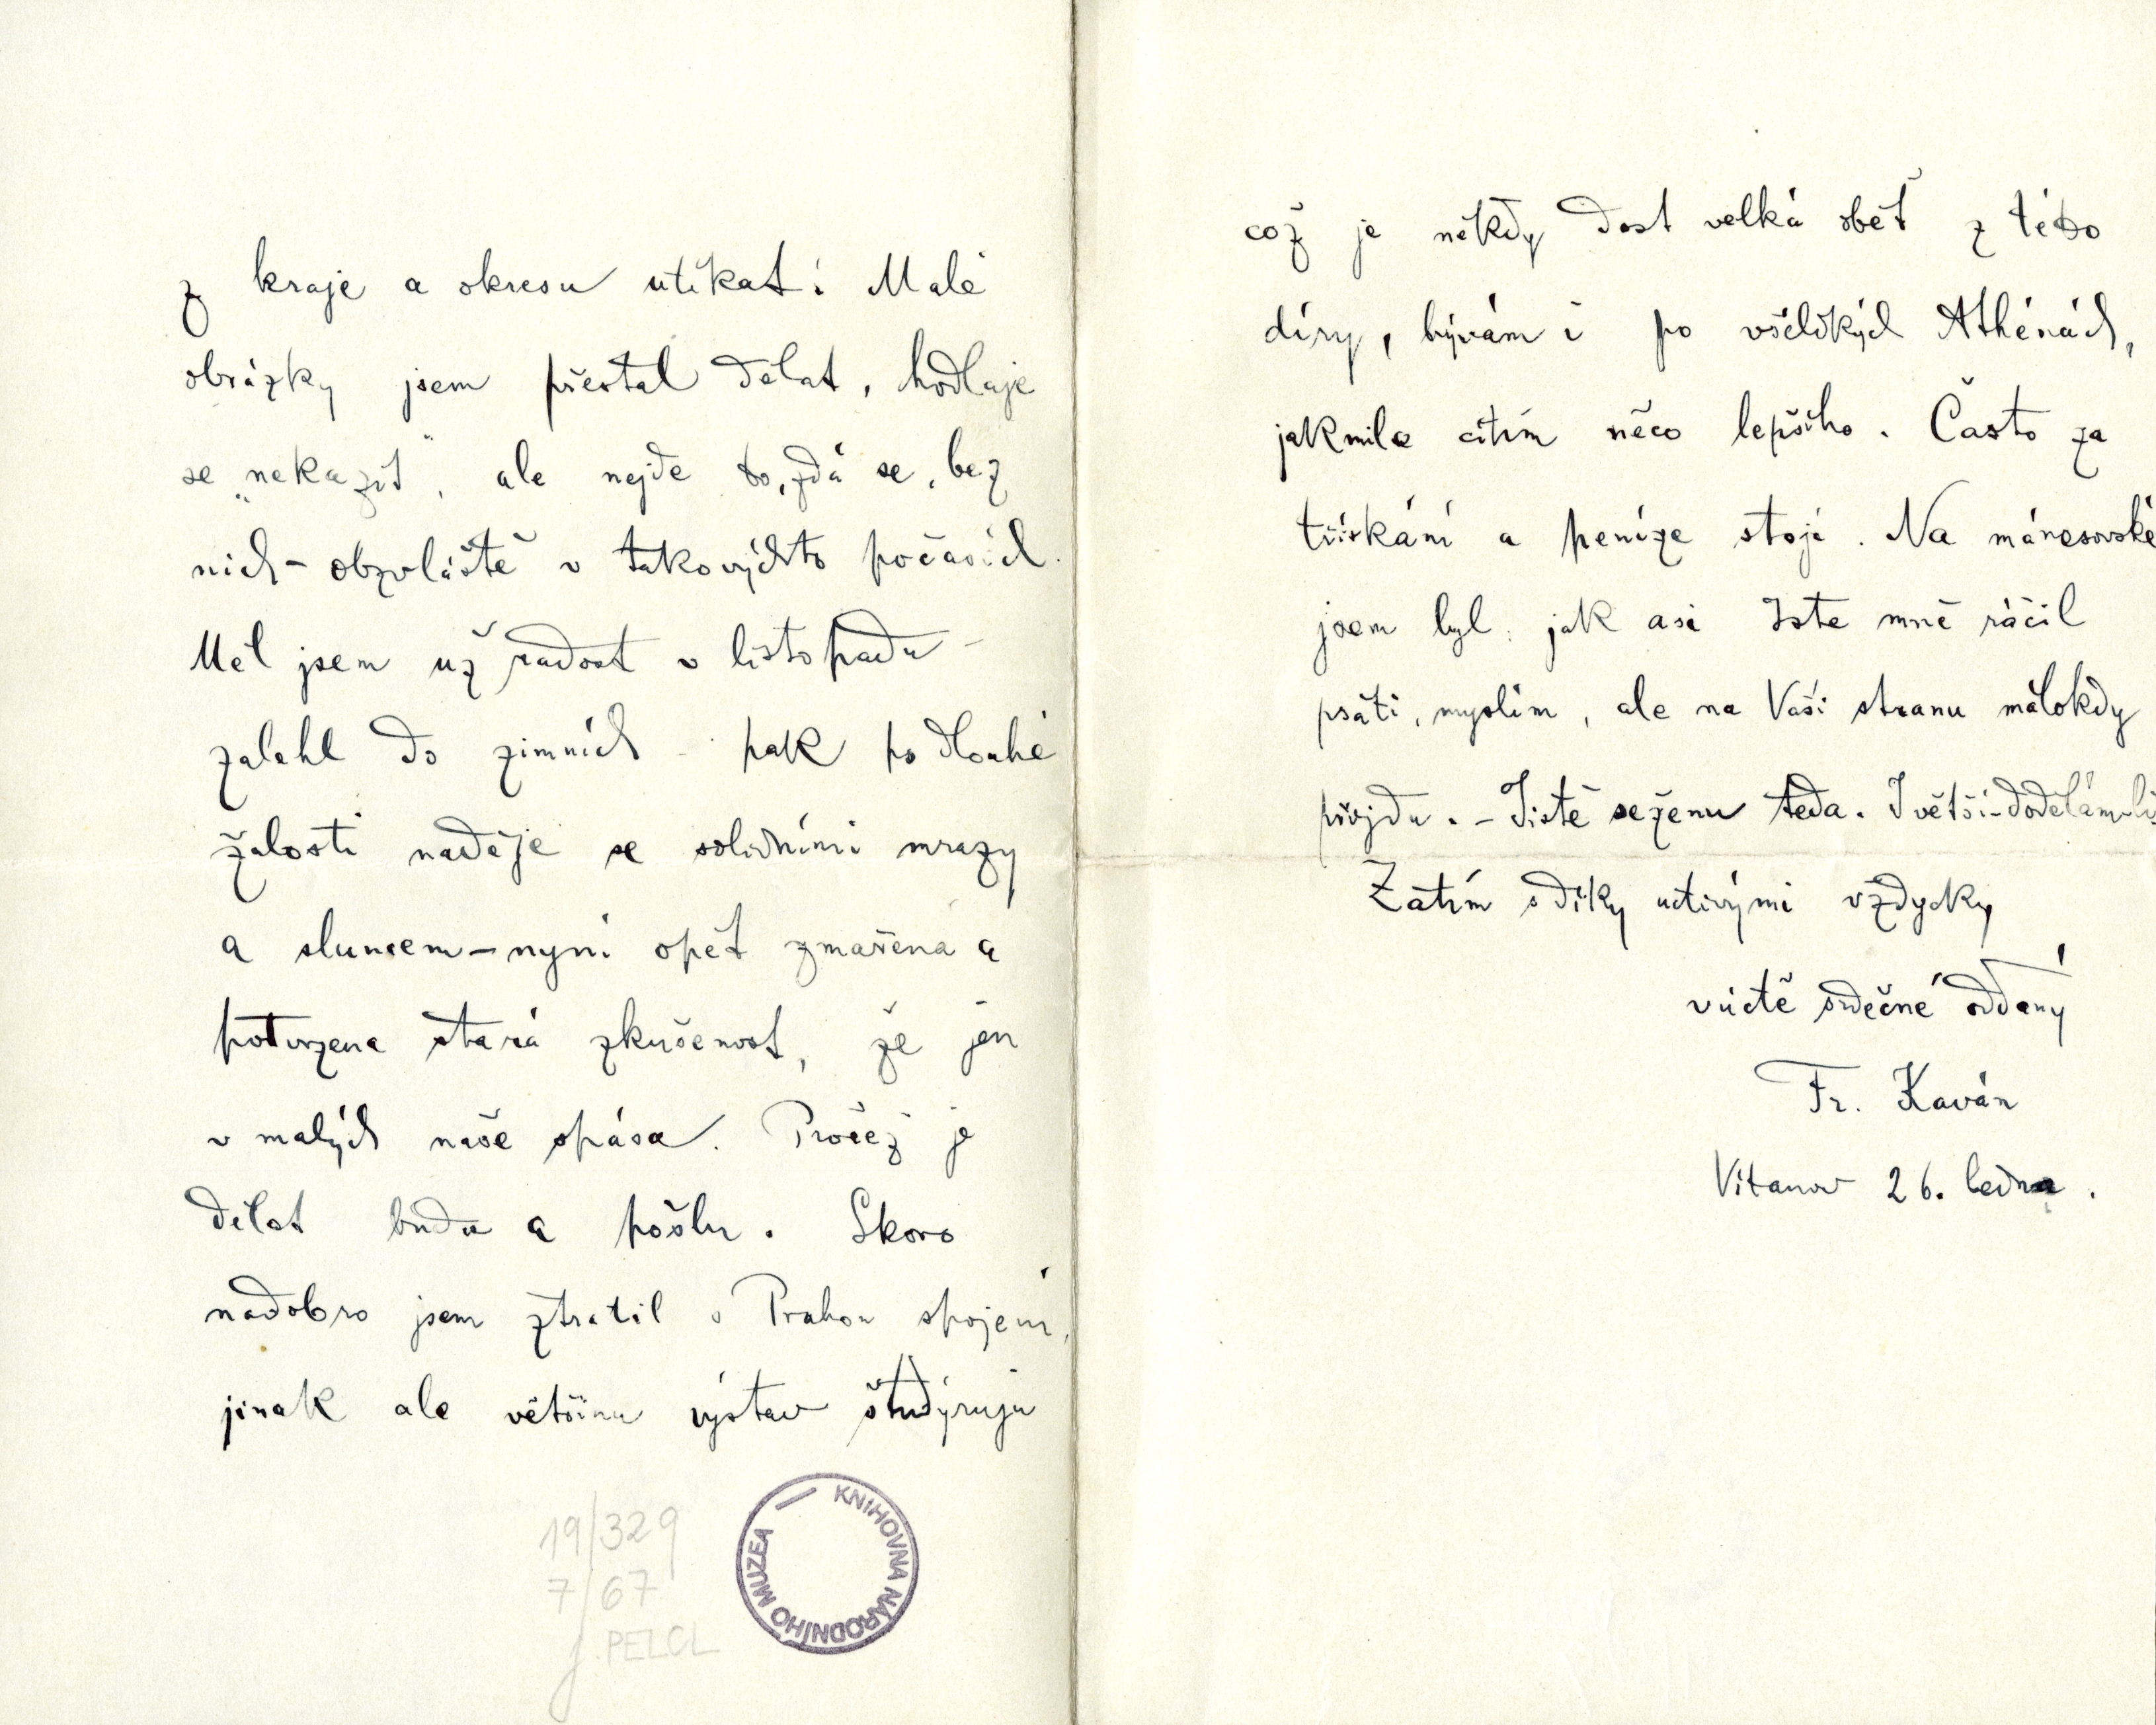 z kraje a okresu utíkat! Malé
obrázky jsem přestal dělat, hodlaje
se „nekazit“, ale nejde to, zdá se, bez
nich – obzvláště v takovýchto počasích.
Měl jsem už radost v listopadu –
zalehl do zimních – pak po dlouhé
žalosti naděje se solidními mrazy
a sluncem – nyní opět zmařena a
potvrzena stará zkušenost, že jen
v malých naše spása. Pročež je
dělat budu a pošlu. Skoro
nadobro jsem ztratil s Prahou spojení,
jinak ale většinu výstav študýruju
19/329
7/67
J. PELCL
KNIHOVNA NÁRODNÍHO MUZEA
což je někdy dost velká oběť z této
díry, bývám i po všelikých Athénách,
jakmile cítím něco lepšího. Často za
třískání a peníze stojí. Na mánesovské
jsem byl, jak asi jste mně ráčil
psáti, myslím, ale na Vaši stranu málokdy
přijdu. – Jistě seženu teda. I větší – dodělám-li
Zatím s díky uctivými vždycky
v úctě srdečné oddaný
Fr. Kaván
Vitanov 26. ledna.